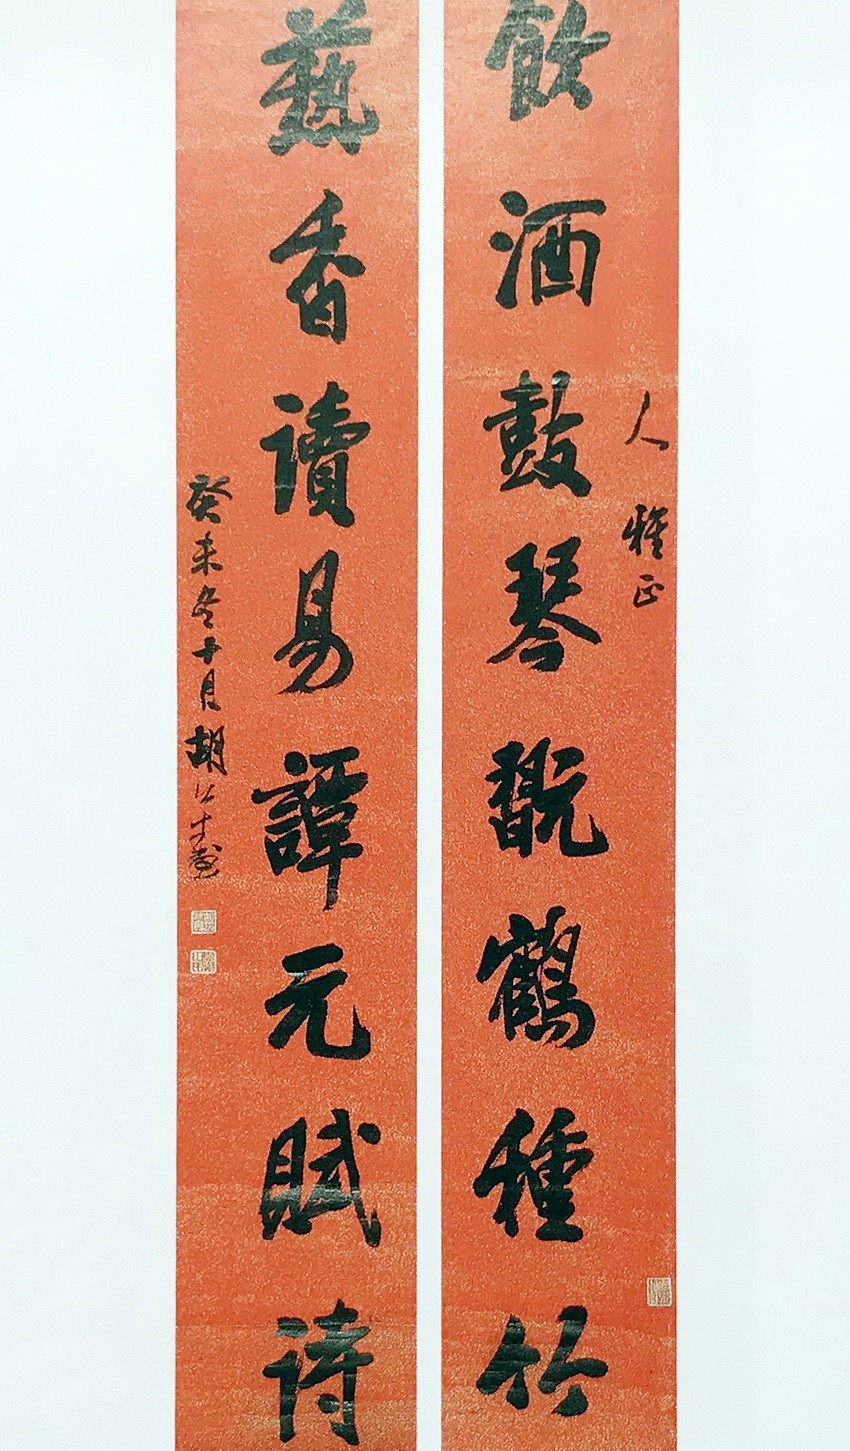 人 雅正
飲酒鼓琴翫鶴種竹
爇香讀易譚元賦詩
癸未冬十月胡公壽書